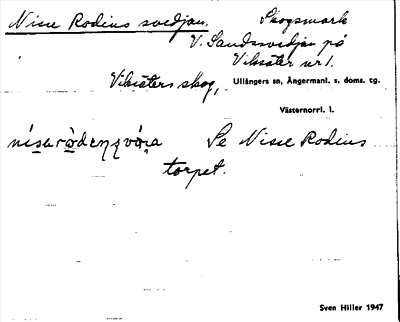 Nisse Rodius svedjan.
Skogsmark
V. Sandssvedjan på
Viksäter nr 1.
Viksäters skog, Ullångers sn, Ångermanl. s. doms. tg.
Västernorrl. l.
Se Nisse Rodius
torpet.
Sven Hiller 1947